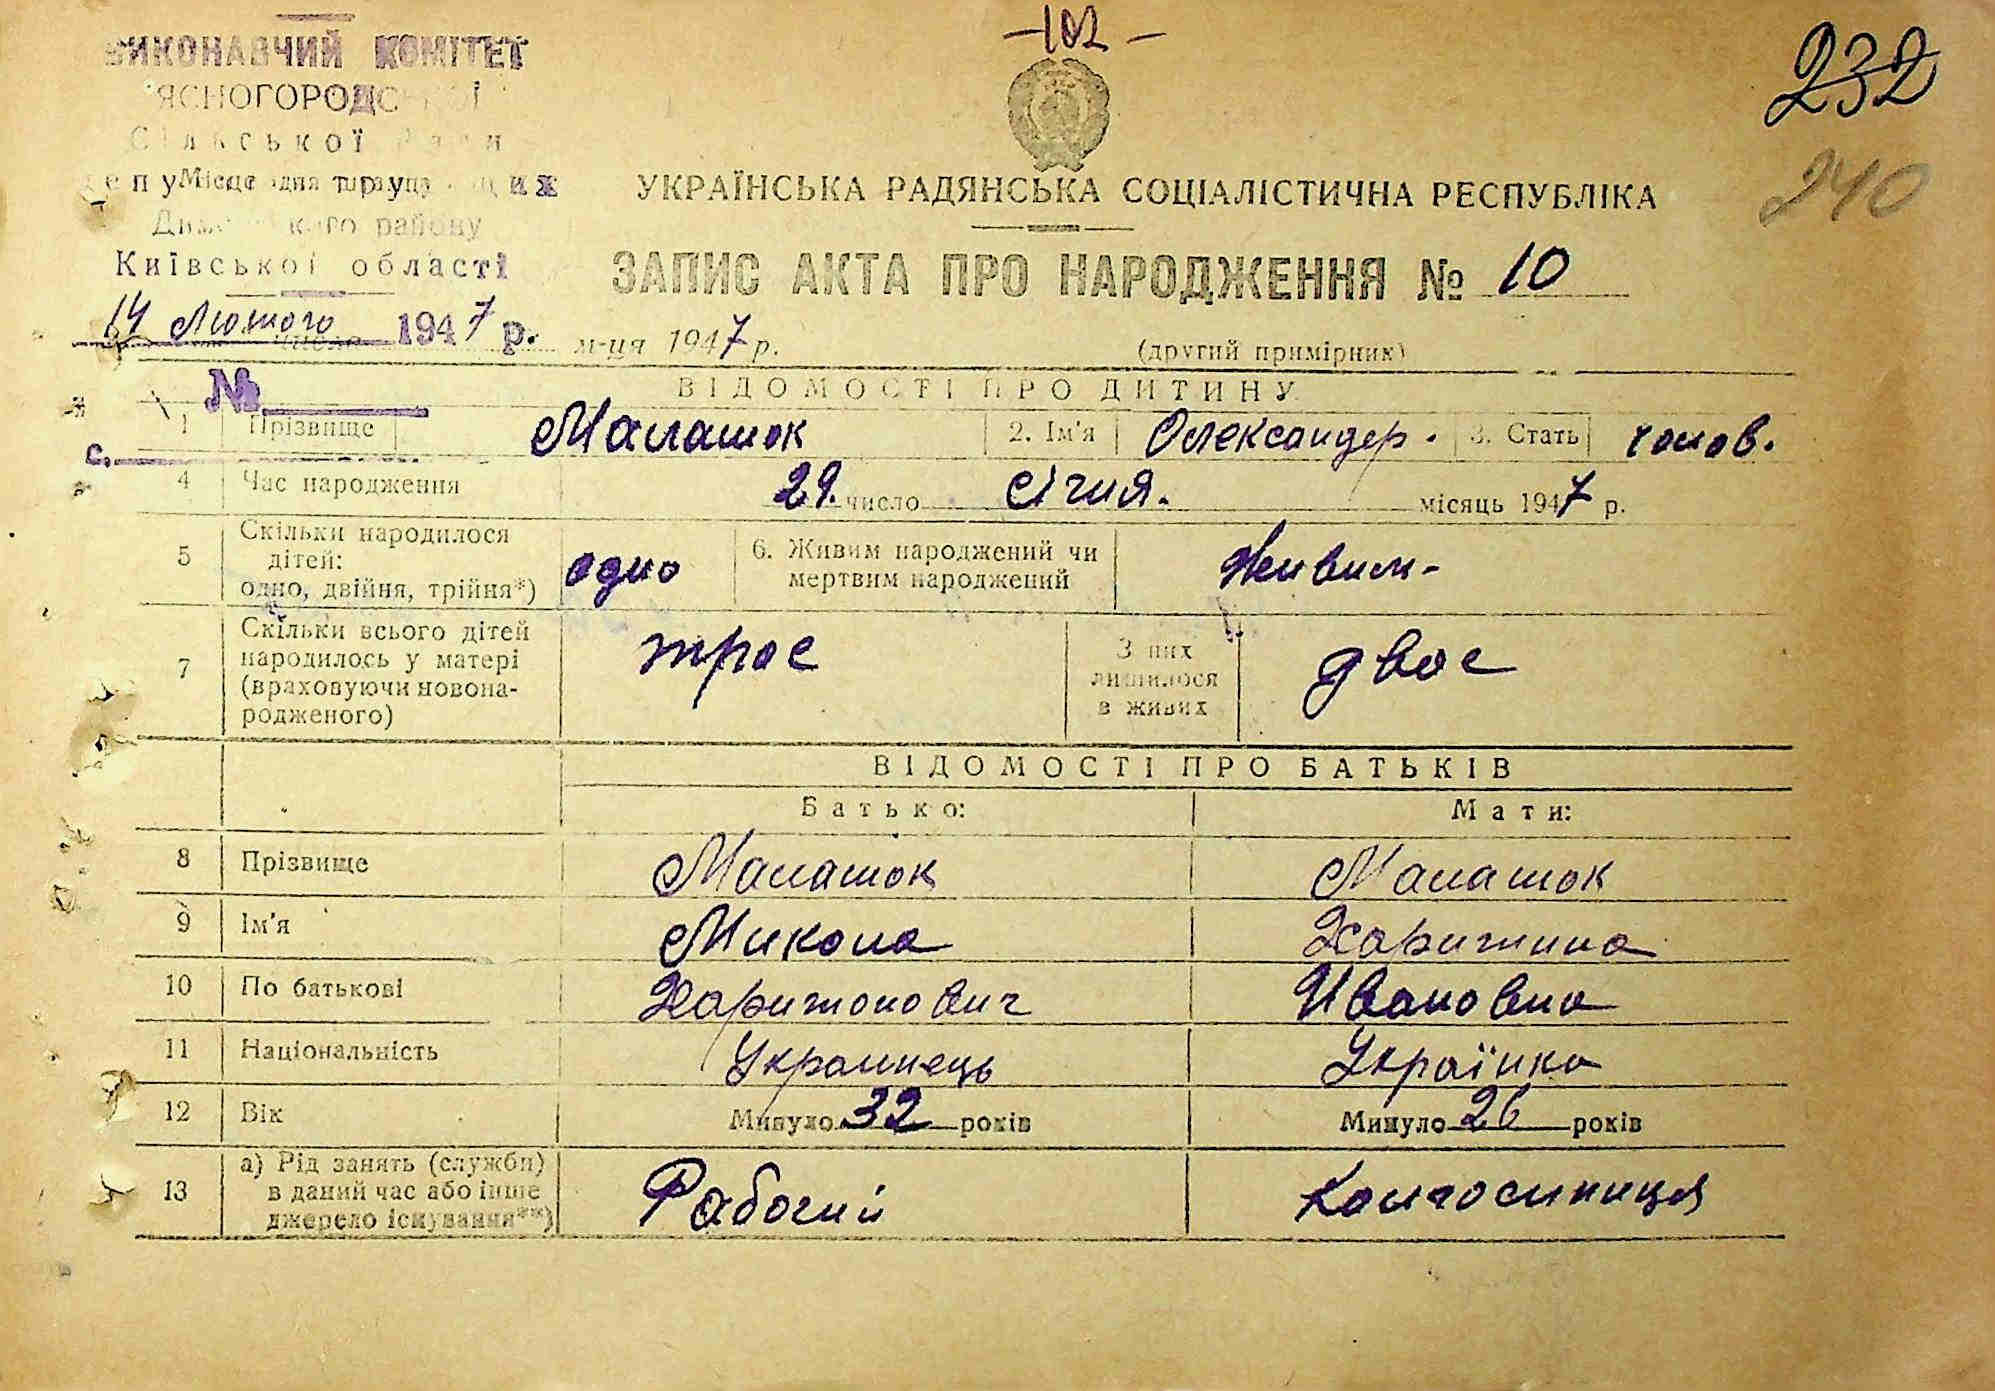 -102-
232
240
ВИКОНАВЧИЙ КОМІТЕТ
ЯСНОГОРОДСЬКОЇ
Сільської Ради
УКРАЇНСЬКА РАДЯНСЬКА СОЦІАЛІСТИЧНА РЕСПУБЛІКА
району
Київської області
ЗАПИС АКТА ПРО НАРОДЖЕННЯ № 10
14 Лютого 1947 р.
числа м-ця 1947 р.
(другий примірник)
№
ВІДОМОСТІ ПРО ДИТИНУ
1 Прізвище Малашок 2. Ім'я Олександер. 3. Стать чолов.
с.
4 Час народження 29. число Січня. місяць 1947 р.
5 Скільки народилося дітей: одно, двійня, трійня*) одно 6. Живим народжений чи мертвим народжений Живим-
7 Скільки всього дітей народилось у матері (враховуючи новонародженого) трое З них лишилося в живих двое
ВІДОМОСТІ ПРО БАТЬКІВ
Батько: Мати:
8 Прізвище Малашок Малашок
9 Ім'я Микола Харитина
10 По батькові Харитонович Ивановна
11 Національність Украинець Українка
12 Вік Минуло 32 років Минуло 26 років
13 а) Рід занять (служби) в даний час або інше джерело існування**) Рабочий Колгоспниця